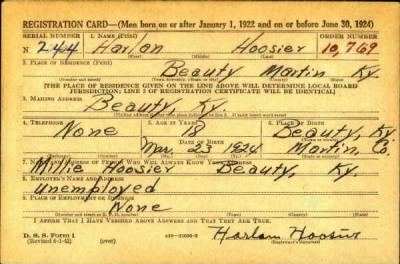 REGISTRATION CARD—(Men born on or after January 1, 1922 and on or before June 30, 1924)
SERIAL NUMBER 1. NAME (Print) ORDER NUMBER
N. 244 Harlan Hoosier 10,769
(First) (Middle) (Last)
2. PLACE OF RESIDENCE (Print)
Beauty Martin Ky.
(Number and street) (Town, township, village, or city) (County) (State)
[THE PLACE OF RESIDENCE GIVEN ON THE LINE ABOVE WILL DETERMINE LOCAL BOARD
JURISDICTION; LINE 1 OF REGISTRATION CERTIFICATE WILL BE IDENTICAL]
3. MAILING ADDRESS
Beauty, Ky.
4. TELEPHONE 5. AGE IN YEARS 6. PLACE OF BIRTH
None 18 Beauty, Ky
DATE OF BIRTH
Mar. 23 1924 Martin, Co.
7. NAME AND ADDRESS OF PERSON WHO WILL ALWAYS KNOW YOUR ADDRESS
Millie Hoosier Beauty, Ky.
8. EMPLOYER'S NAME AND ADDRESS
unemployed
9. PLACE OF EMPLOYMENT OR BUSINESS
None
(Number and street or R. F. D. number) (Town) (County) (State)
I AFFIRM THAT I HAVE VERIFIED ABOVE ANSWERS AND THAT THEY ARE TRUE.
D. S. S. Form 1
(Revised 6-1-42) (over) Harlan Hoosier
(Registrant's signature)